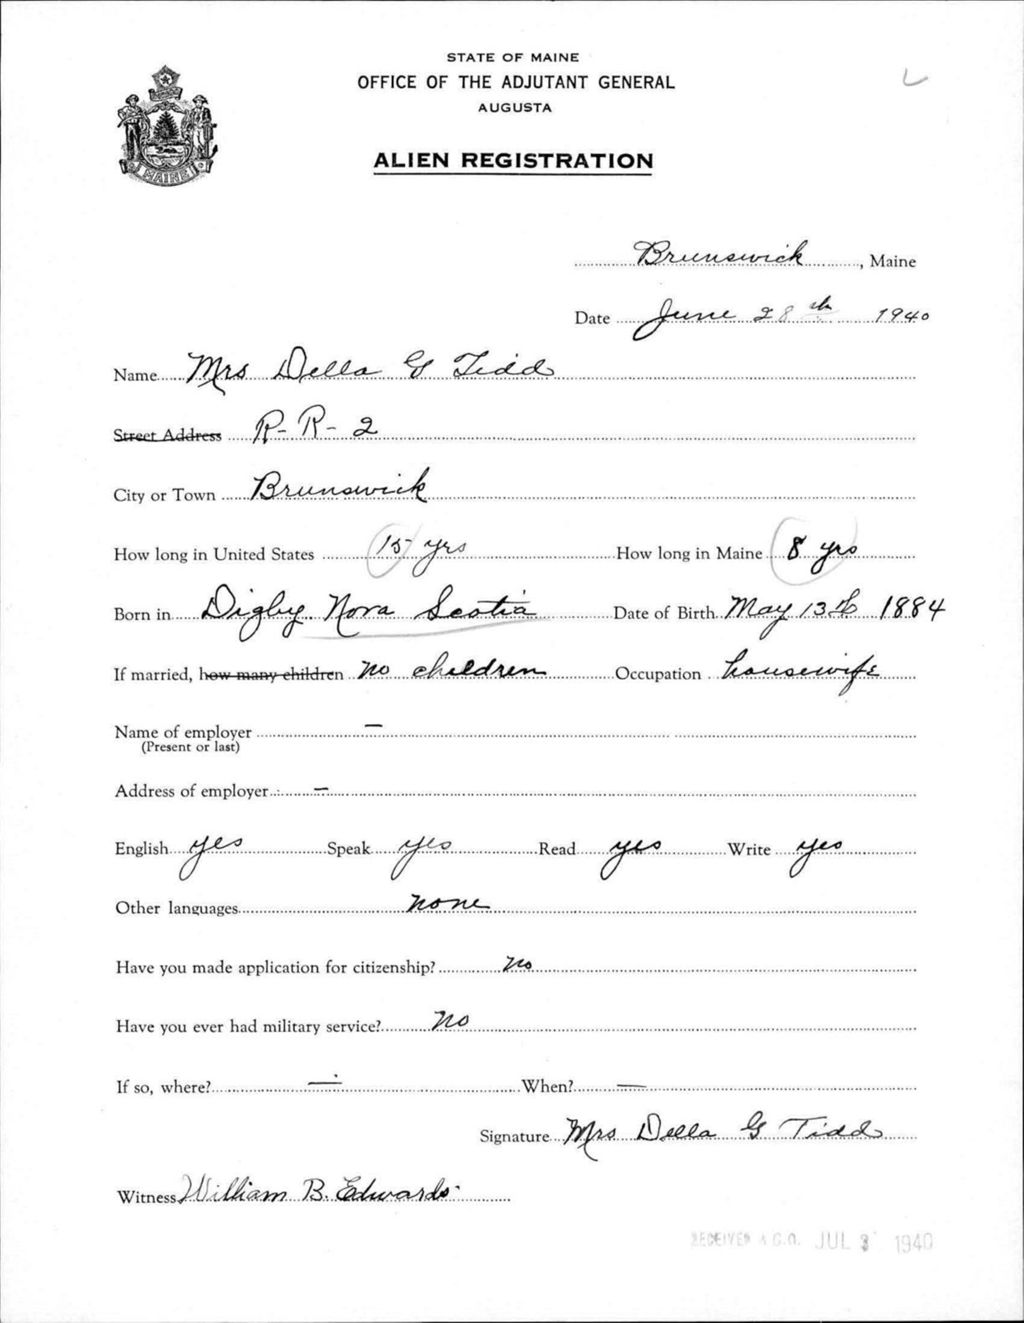 STATE OF MAINE
OFFICE OF THE ADJUTANT GENERAL
AUGUSTA
ALIEN REGISTRATION
MAINE
Brunswick, Maine
Date June 28th 1940
Name Mrs Della G Tidd
Street Address R-R-2
City or Town Brunswick
How long in United States 15 yrs How long in Maine 8 yrs
Born in Digby Nova Scotia Date of Birth May 13th 1884
If married, how many children no children Occupation housewife
Name of employer —
(Present or last)
Address of employer —
English yes Speak yes Read yes Write yes
Other languages none
Have you made application for citizenship? No
Have you ever had military service? No
If so, where? — When? —
Signature Mrs Della G Tidd
Witness William B. Edwards
RECEIVED A.G.O. JUL 3 1940